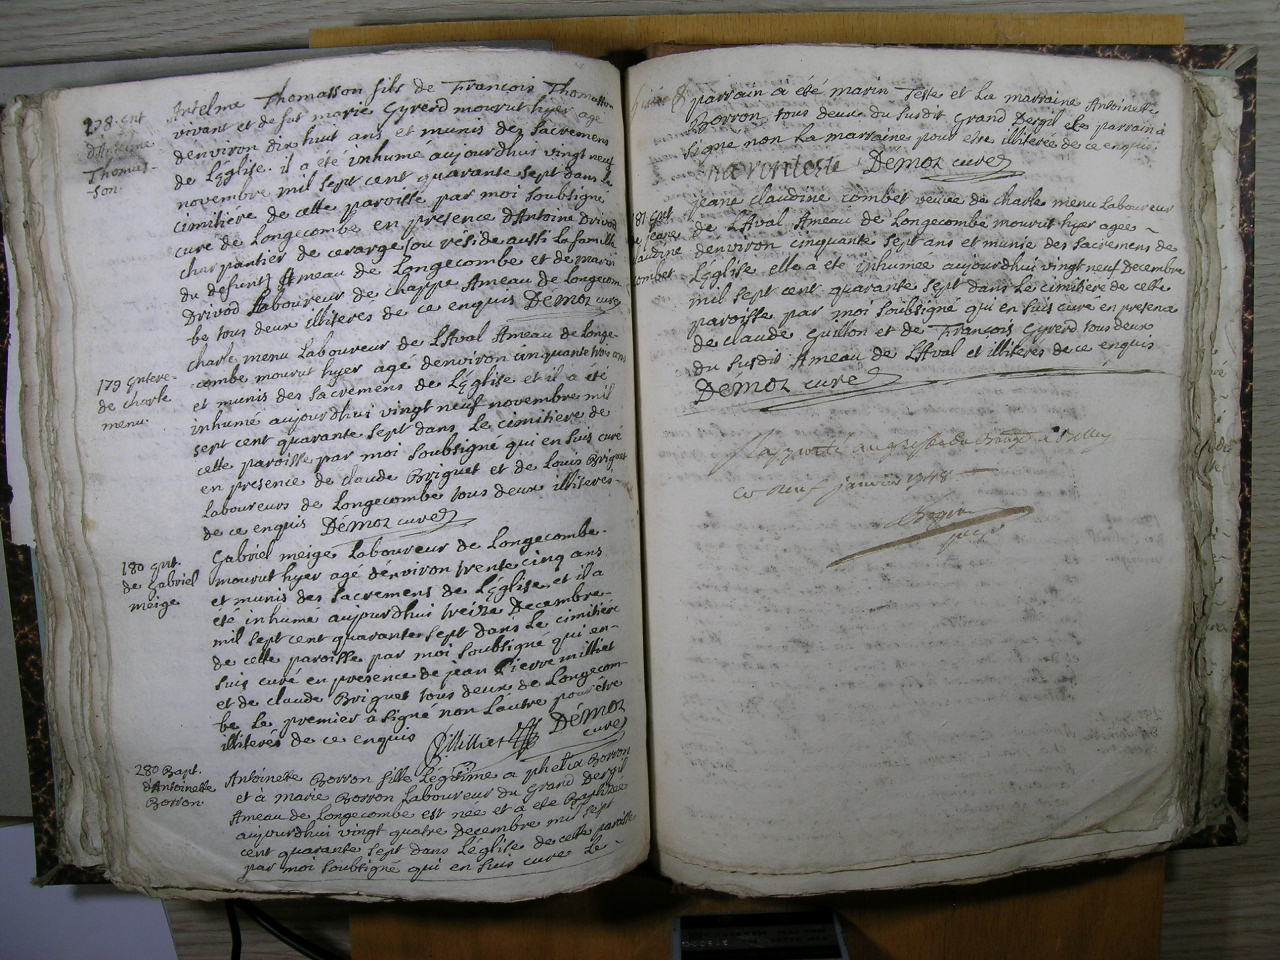 278. Ent
d'Antelme
Thomas-
son.
Antelme Thomasson fils de François Thomasson
vivant et de fut marie Gyrerd mourut hyer agé
denviron dix huit ans et munis dez sacremens
de L'Eglise. il a été inhumé aujourdhui vingt neuf
novembre mil sept cent quarante sept dans le
cimitiere de cette paroisse par moi soubsigné
curé de Longecombe en presence d'Antoine Drivod
charpantier de cerarge (ou réside aussi la famille
du defunt) Ameau de Longecombe et de marin
Drivod Laboureur de chappe Ameau de Longecom
be tous deux illiteres de ce enquis Demoz curé
179 Entere-
de charle
menu.
charle menu Laboureur de L'Aval Ameau de Longe-
combe mourut hyer agé denviron cinquante trois ans
et munis des sacremens de L'Eglise et il a été
inhumé aujourdhui vingt neuf novembre mil
sept cent quarante sept dans Le cimitiere de
cette paroisse par moi soubsigné qui en suis curé
en presence de claude Briguet et de Louis Briguet
Laboureurs de Longecombe tous deux illiteres
de ce enquis Démoz curé
180 Ent.
de Gabriel
meige
Gabriel meige Laboureur de Longecombe
mourut hyer agé dénviron trente cinq ans
et munis des sacremens de L'Eglise et il a
été inhumé aujourdhui treize Decembre
mil sept cent quarante sept dans Le cimitiere
de cette paroisse par moi soubsigné qui en
suis curé en presence de jean Pierre milliet
et de claude Briguet tous deux de Longecom
be Le premier a signé non Lautre pour être
illiterés de ce enquis Milliet Démoz
curé
280 Bapt.
d'Antoinette
Borron
Antoinette Borron fille Légitime a Borron
et à marie Borron Laboureur du Grand Dergil
Ameau de Longecombe est née et a été Baptisée
aujourdhui vingt quatre decembre mil sept
cent quarante sept dans Léglise de cette paroisse
par moi soubsigné qui en suis curé Le
parrain a été marin Teste et La marraine Antoinette
Borron tous deux du susdit Grand Dergil Le parrain à
signé non La marraine pour être illiterée de ce enquis
Démoz curé
181 Ent.
de jeane
claudine
combet
jeane claudine combet veuve de charle menu Laboureur
de L'Aval Ameau de Longecombe mourut hyer agée
denviron cinquante sept ans et munie des sacremens de
L'Eglise elle a été inhumée aujourdhui vingt neuf decembre
mil sept cent quarante sept dans Le cimitiere de cette
paroisse par moi soubsigné qui en suis curé en presence
de claude Guillon et de François Gyrerd tous deux
du susdit Ameau de L'Aval et illiteres de ce enquis
Démoz curé
Rapporté au greffe du Baage a Belley
ce neuf janvier 1748